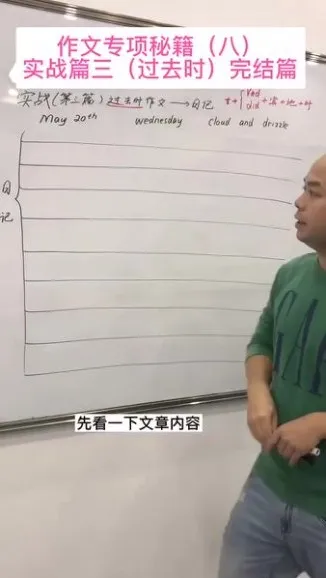 作文专项秘籍（八）
实战篇三（过去时）完结篇
实战(第三篇) 过去时作文 → 日记 主+{Ved did+宾+地+时
May 20th wednesday cloud and drizzle
日
记
GA
先看一下文章内容